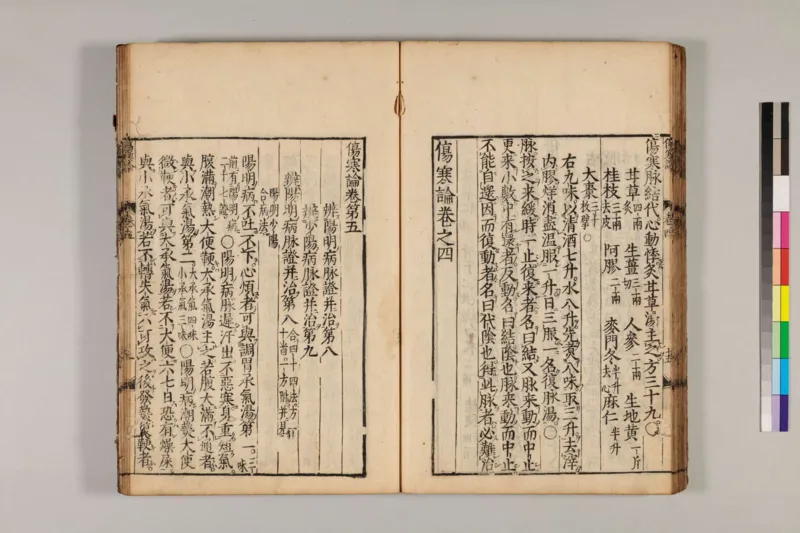 傷寒脉結代心動悸炙甘草湯主之方三十九○
甘草四兩炙 生薑三兩切 人參二兩 生地黃一斤
桂枝三兩去皮 阿膠二兩 麥門冬半升去心 麻仁半升
大棗三十枚擘○
右九味以清酒七升水八升先煑八味取三升去滓
内膠烊消盡温服一升日三服一名復脉湯○
脉按之來緩時一止復來者名曰結又脉來動而中止
更來小數中有還者反動名曰結陰也脉來動而中止
不能自還因而復動者名曰代陰也得此脉者必難治
傷寒論卷之四
傷寒論卷第五
辨陽明病脉證并治第八
辨少陽病脉證并治第九
辨陽明病脉證并治第八
陽明病不吐不下心煩者可與調胃承氣湯第一
○陽明病脉遲汗出不惡寒身重短氣
腹滿潮熱大便鞕大承氣湯主之若腹大滿不通者
與小承氣湯第二大承氣四味小承氣三味○陽明病潮熱大便
微鞕者可與大承氣湯若不大便六七日恐有燥屎
與小承氣湯若不轉失氣不可攻之後發熱復鞕者